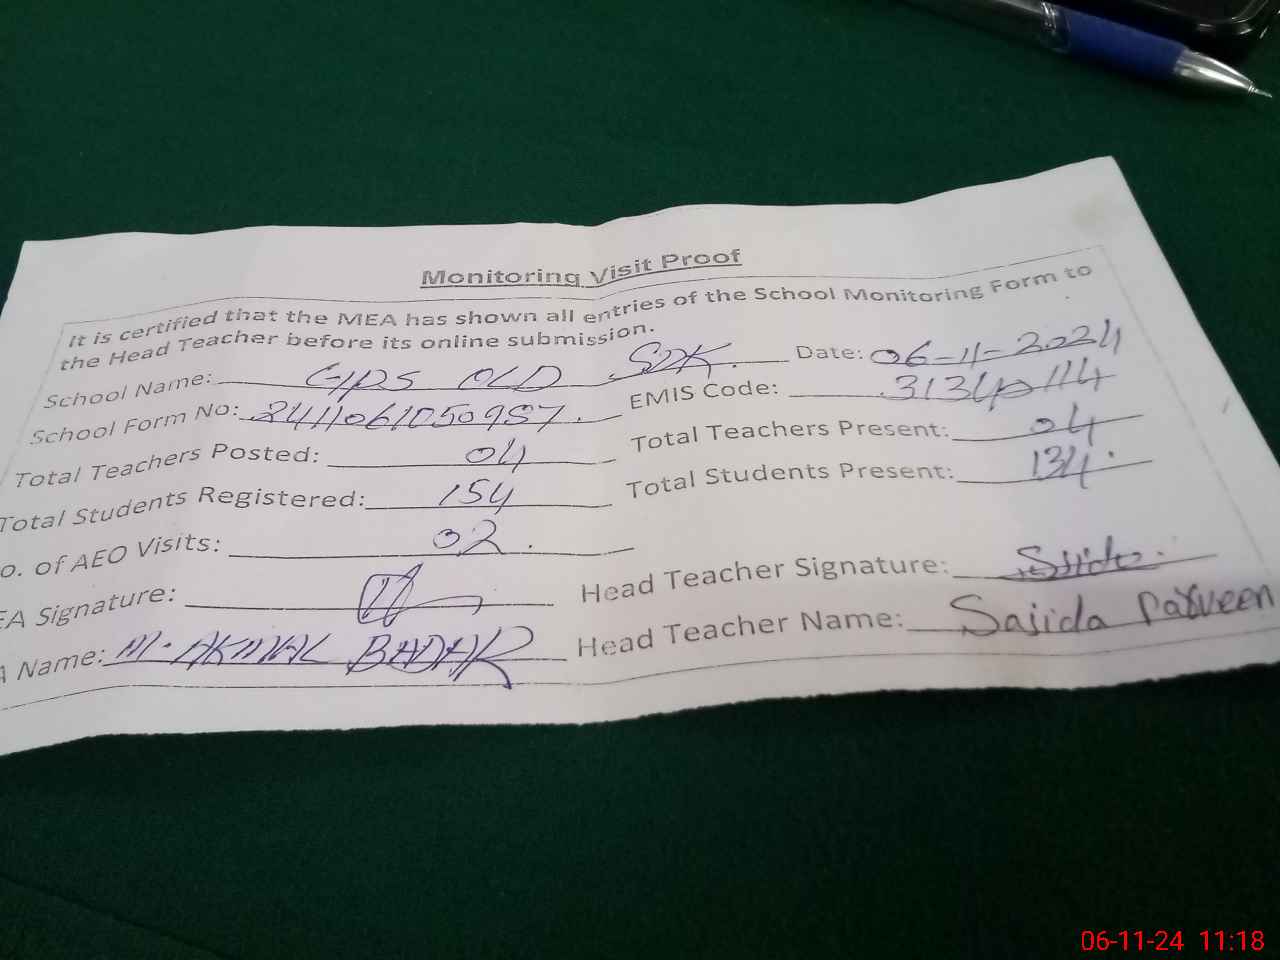 Monitoring Visit Proof
It is certified that the MEA has shown all entries of the School Monitoring Form to
the Head Teacher before its online submission.
School Name: GPS OLD SDK. Date: 06-11-2024
School Form No: 2411061050957. EMIS Code: 31340114
Total Teachers Posted: 04 Total Teachers Present: 04
Total Students Registered: 154 Total Students Present: 134.
o. of AEO Visits: 02.
EA Signature: Head Teacher Signature:
A Name: M. AKMAL BADAR Head Teacher Name: Sajida Parveen
06-11-24 11:18